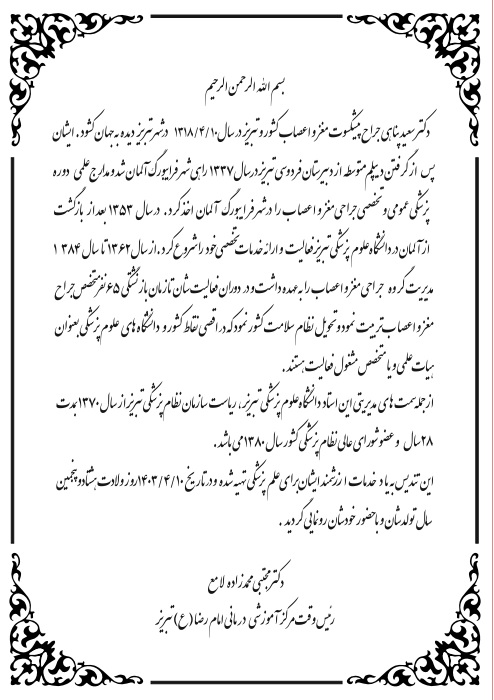 بسم الله الرحمن الرحیم
دکتر سعید پناهی جراح پیشکسوت مغز و اعصاب کشور و تبریز در سال ۱۳۱۸/۴/۱۰ در شهر تبریز دیده به جهان گشود . ایشان
پس از گرفتن دیپلم متوسطه از دبیرستان فردوسی تبریز در سال ۱۳۳۷ راهی شهر فرایبورگ آلمان شد و مدارج علمی دوره
پزشکی عمومی و تخصصی جراحی مغز و اعصاب را در شهر فرایبورگ آلمان اخذ کرد . در سال ۱۳۵۳ بعد از بازگشت
از آلمان در دانشگاه علوم پزشکی تبریز فعالیت و ارائه خدمات تخصصی خود را شروع کرد . از سال ۱۳۶۲ تا سال ۱۳۸۴
مدیریت گروه جراحی مغز و اعصاب را به عهده داشت و در دوران فعالیت شان تا زمان بازنشستگی ۶۵ نفر متخصص جراح
مغز و اعصاب تربیت نمود و تحویل نظام سلامت کشور نمود که در اقصی نقاط کشور و دانشگاه های علوم پزشکی بعنوان
هیات علمی و یا متخصص مشغول فعالیت هستند .
از جمله سمت های مدیریتی این استاد دانشگاه علوم پزشکی تبریز ، ریاست سازمان نظام پزشکی تبریز از سال ۱۳۷۰ بمدت
۲۸ سال و عضو شورای عالی نظام پزشکی کشور سال ۱۳۸۰ می باشد .
این تندیس به یاد خدمات ارزشمند ایشان برای علم پزشکی تهیه شده و در تاریخ ۱۴۰۳/۴/۱۰ روز ولادت هشتاد و پنجمین
سال تولدشان و با حضور خودشان رونمایی گردید .
دکتر مجتبی محمدزاده لامع
رئیس وقت مرکز آموزشی درمانی امام رضا (ع) تبریز